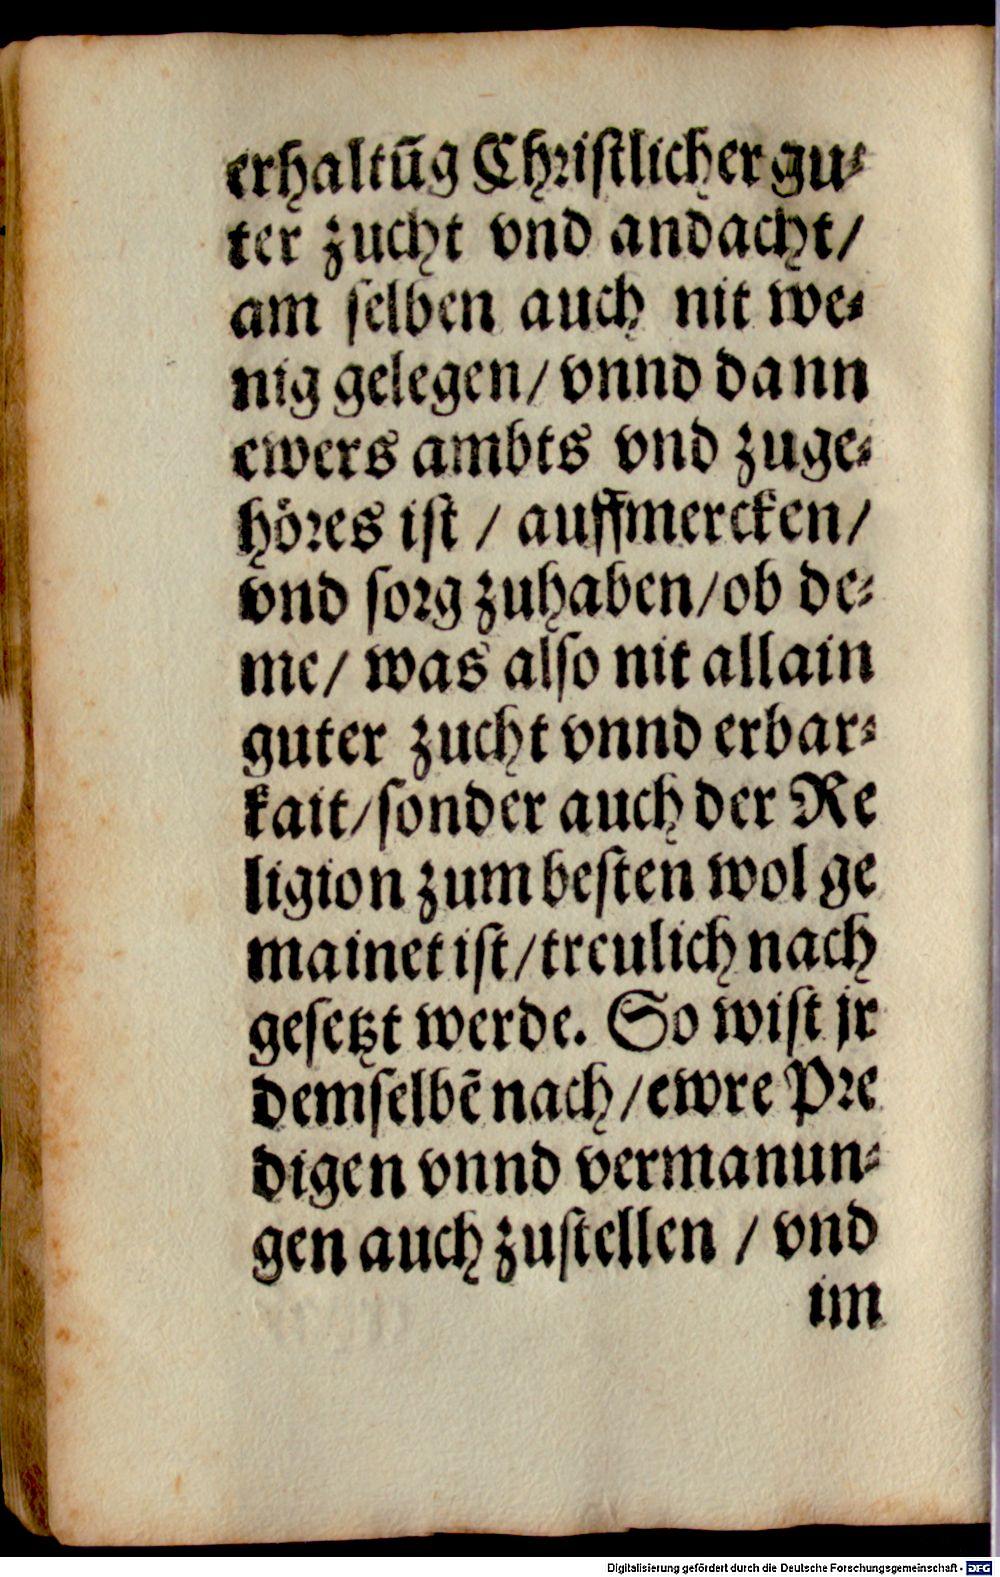 erhaltũg Christlicher gu⸗
ter zucht vnd andacht/
am selben auch nit we⸗
nig gelegen/ vnnd dann
ewers ambts vnd zuge⸗
höres ist / auffmercken/
vnd sorg zuhaben/ob de⸗
me/ was also nit allain
guter zucht vnnd erbar⸗
kait/sonder auch der Re
ligion zum besten wol ge
mainet ist/treulich nach
gesetzt werde. So wist jr
demselbẽ nach/ewre Pre
digen vnnd vermanun⸗
gen auch zustellen / vnd
im
Digitalisierung gefördert durch die Deutsche Forschungsgemeinschaft - DFG